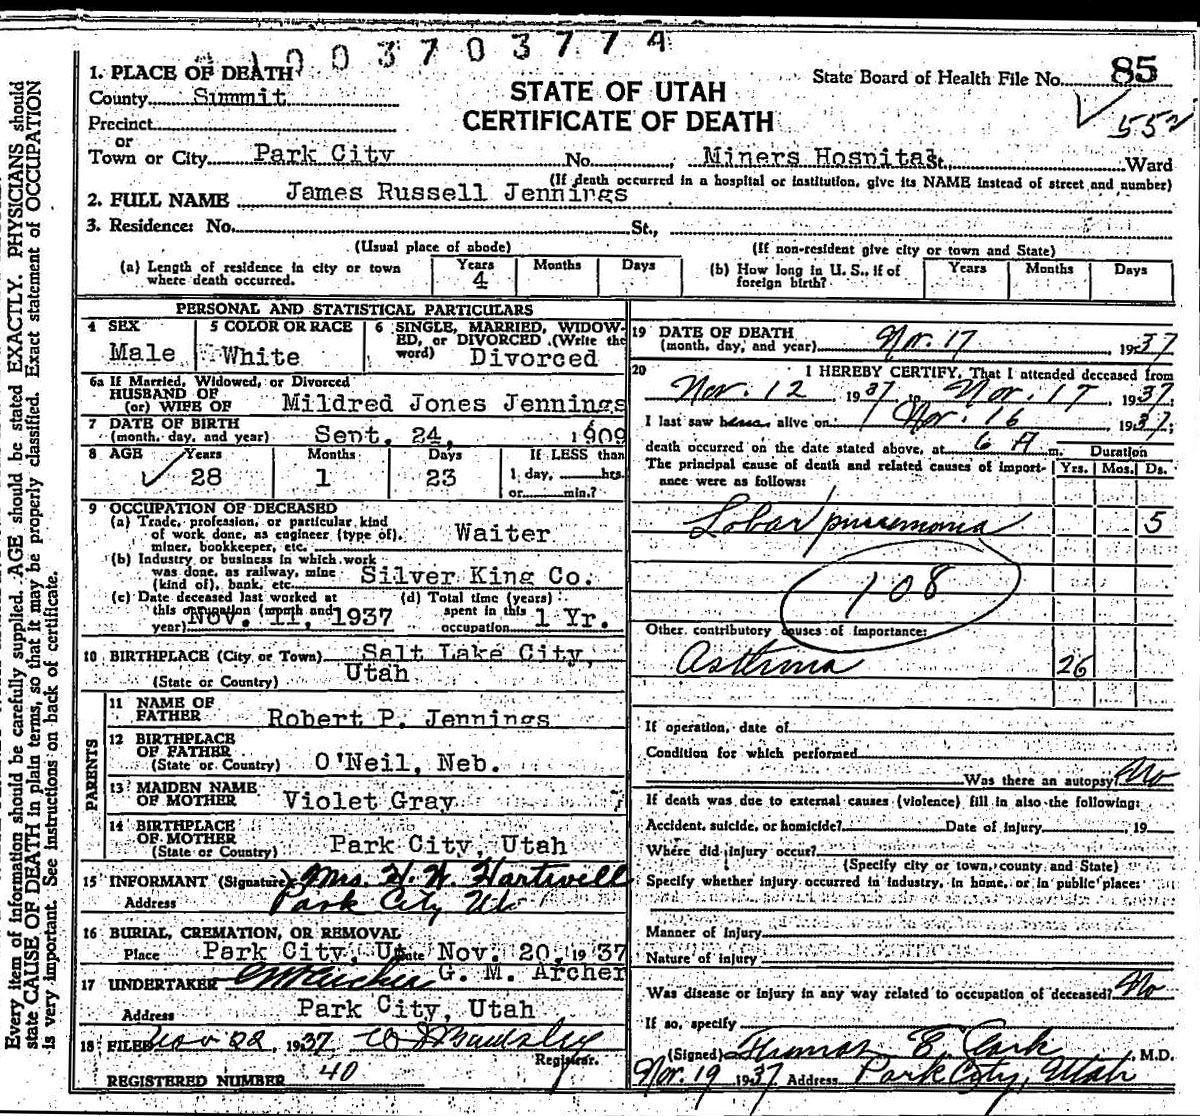 1003703774
1. PLACE OF DEATH
State Board of Health File No. 85
County Summit
STATE OF UTAH
552
Precinct
CERTIFICATE OF DEATH
or
Town or City Park City No. , Miners Hospital St., Ward
(If death occurred in a hospital or institution, give its NAME instead of street and number)
2. FULL NAME James Russell Jennings
3. Residence: No. St.,
(Usual place of abode) (If non-resident give city or town and State)
(a) Length of residence in city or town where death occurred. Years 4 Months Days
(b) How long in U. S., if of foreign birth? Years Months Days
PERSONAL AND STATISTICAL PARTICULARS
4 SEX Male
5 COLOR OR RACE White
6 SINGLE, MARRIED, WIDOW-
ED, or DIVORCED (Write the
word) Divorced
6a If Married, Widowed, or Divorced
HUSBAND OF
(or) WIFE OF Mildred Jones Jennings
7 DATE OF BIRTH
(month, day, and year) Sept. 24, 1909
8 AGE Years Months Days If LESS than
28 1 23 1 day, hrs.
or min.?
9 OCCUPATION OF DECEASED
(a) Trade, profession, or particular kind
of work done, as engineer (type of), Waiter
miner, bookkeeper, etc.
(b) Industry or business in which work
was done, as railway, mine Silver King Co.
(kind of), bank, etc.
(c) Date deceased last worked at
this occupation (month and
year) Nov. 11, 1937
(d) Total time (years)
spent in this
occupation 1 Yr.
10 BIRTHPLACE (City or Town) Salt Lake City,
(State or Country) Utah
PARENTS
11 NAME OF
FATHER Robert P. Jennings
12 BIRTHPLACE
OF FATHER
(State or Country) O'Neil, Neb.
13 MAIDEN NAME
OF MOTHER Violet Gray
14 BIRTHPLACE
OF MOTHER
(State or Country) Park City, Utah
15 INFORMANT (Signature) Mrs. H. W. Hartwell
Address Park City Ut
16 BURIAL, CREMATION, OR REMOVAL
Place Park City, Ut Date Nov. 20, 1937
17 UNDERTAKER G. M. Archer
Address Park City, Utah
18 FILED Nov 22, 1937
Registrar.
REGISTERED NUMBER 40
19 DATE OF DEATH
(month, day, and year) Nov. 17, 1937
20 I HEREBY CERTIFY, That I attended deceased from
Nov. 12, 1937, to Nov. 17, 1937;
I last saw h alive on Nov. 16, 1937;
death occurred on the date stated above, at 6 A m. Duration
The principal cause of death and related causes of import- Yrs. Mos. Ds.
ance were as follows:
Lobar pneumonia 5
108
Other contributory causes of importance:
Asthma 26
If operation, date of
Condition for which performed
Was there an autopsy? No
If death was due to external causes (violence) fill in also the following:
Accident, suicide, or homicide? Date of injury , 19
Where did injury occur?
(Specify city or town, county and State)
Specify whether injury occurred in industry, in home, or in public place:
Manner of injury
Nature of injury
Was disease or injury in any way related to occupation of deceased? No
If so, specify
(Signed) Thomas E. Clark, M.D.
Nov. 19 1937 Address Park City, Utah
Every item of information should be carefully supplied. AGE should be stated EXACTLY. PHYSICIANS should
state CAUSE OF DEATH in plain terms, so that it may be properly classified. Exact statement of OCCUPATION
is very important. See instructions on back of certificate.